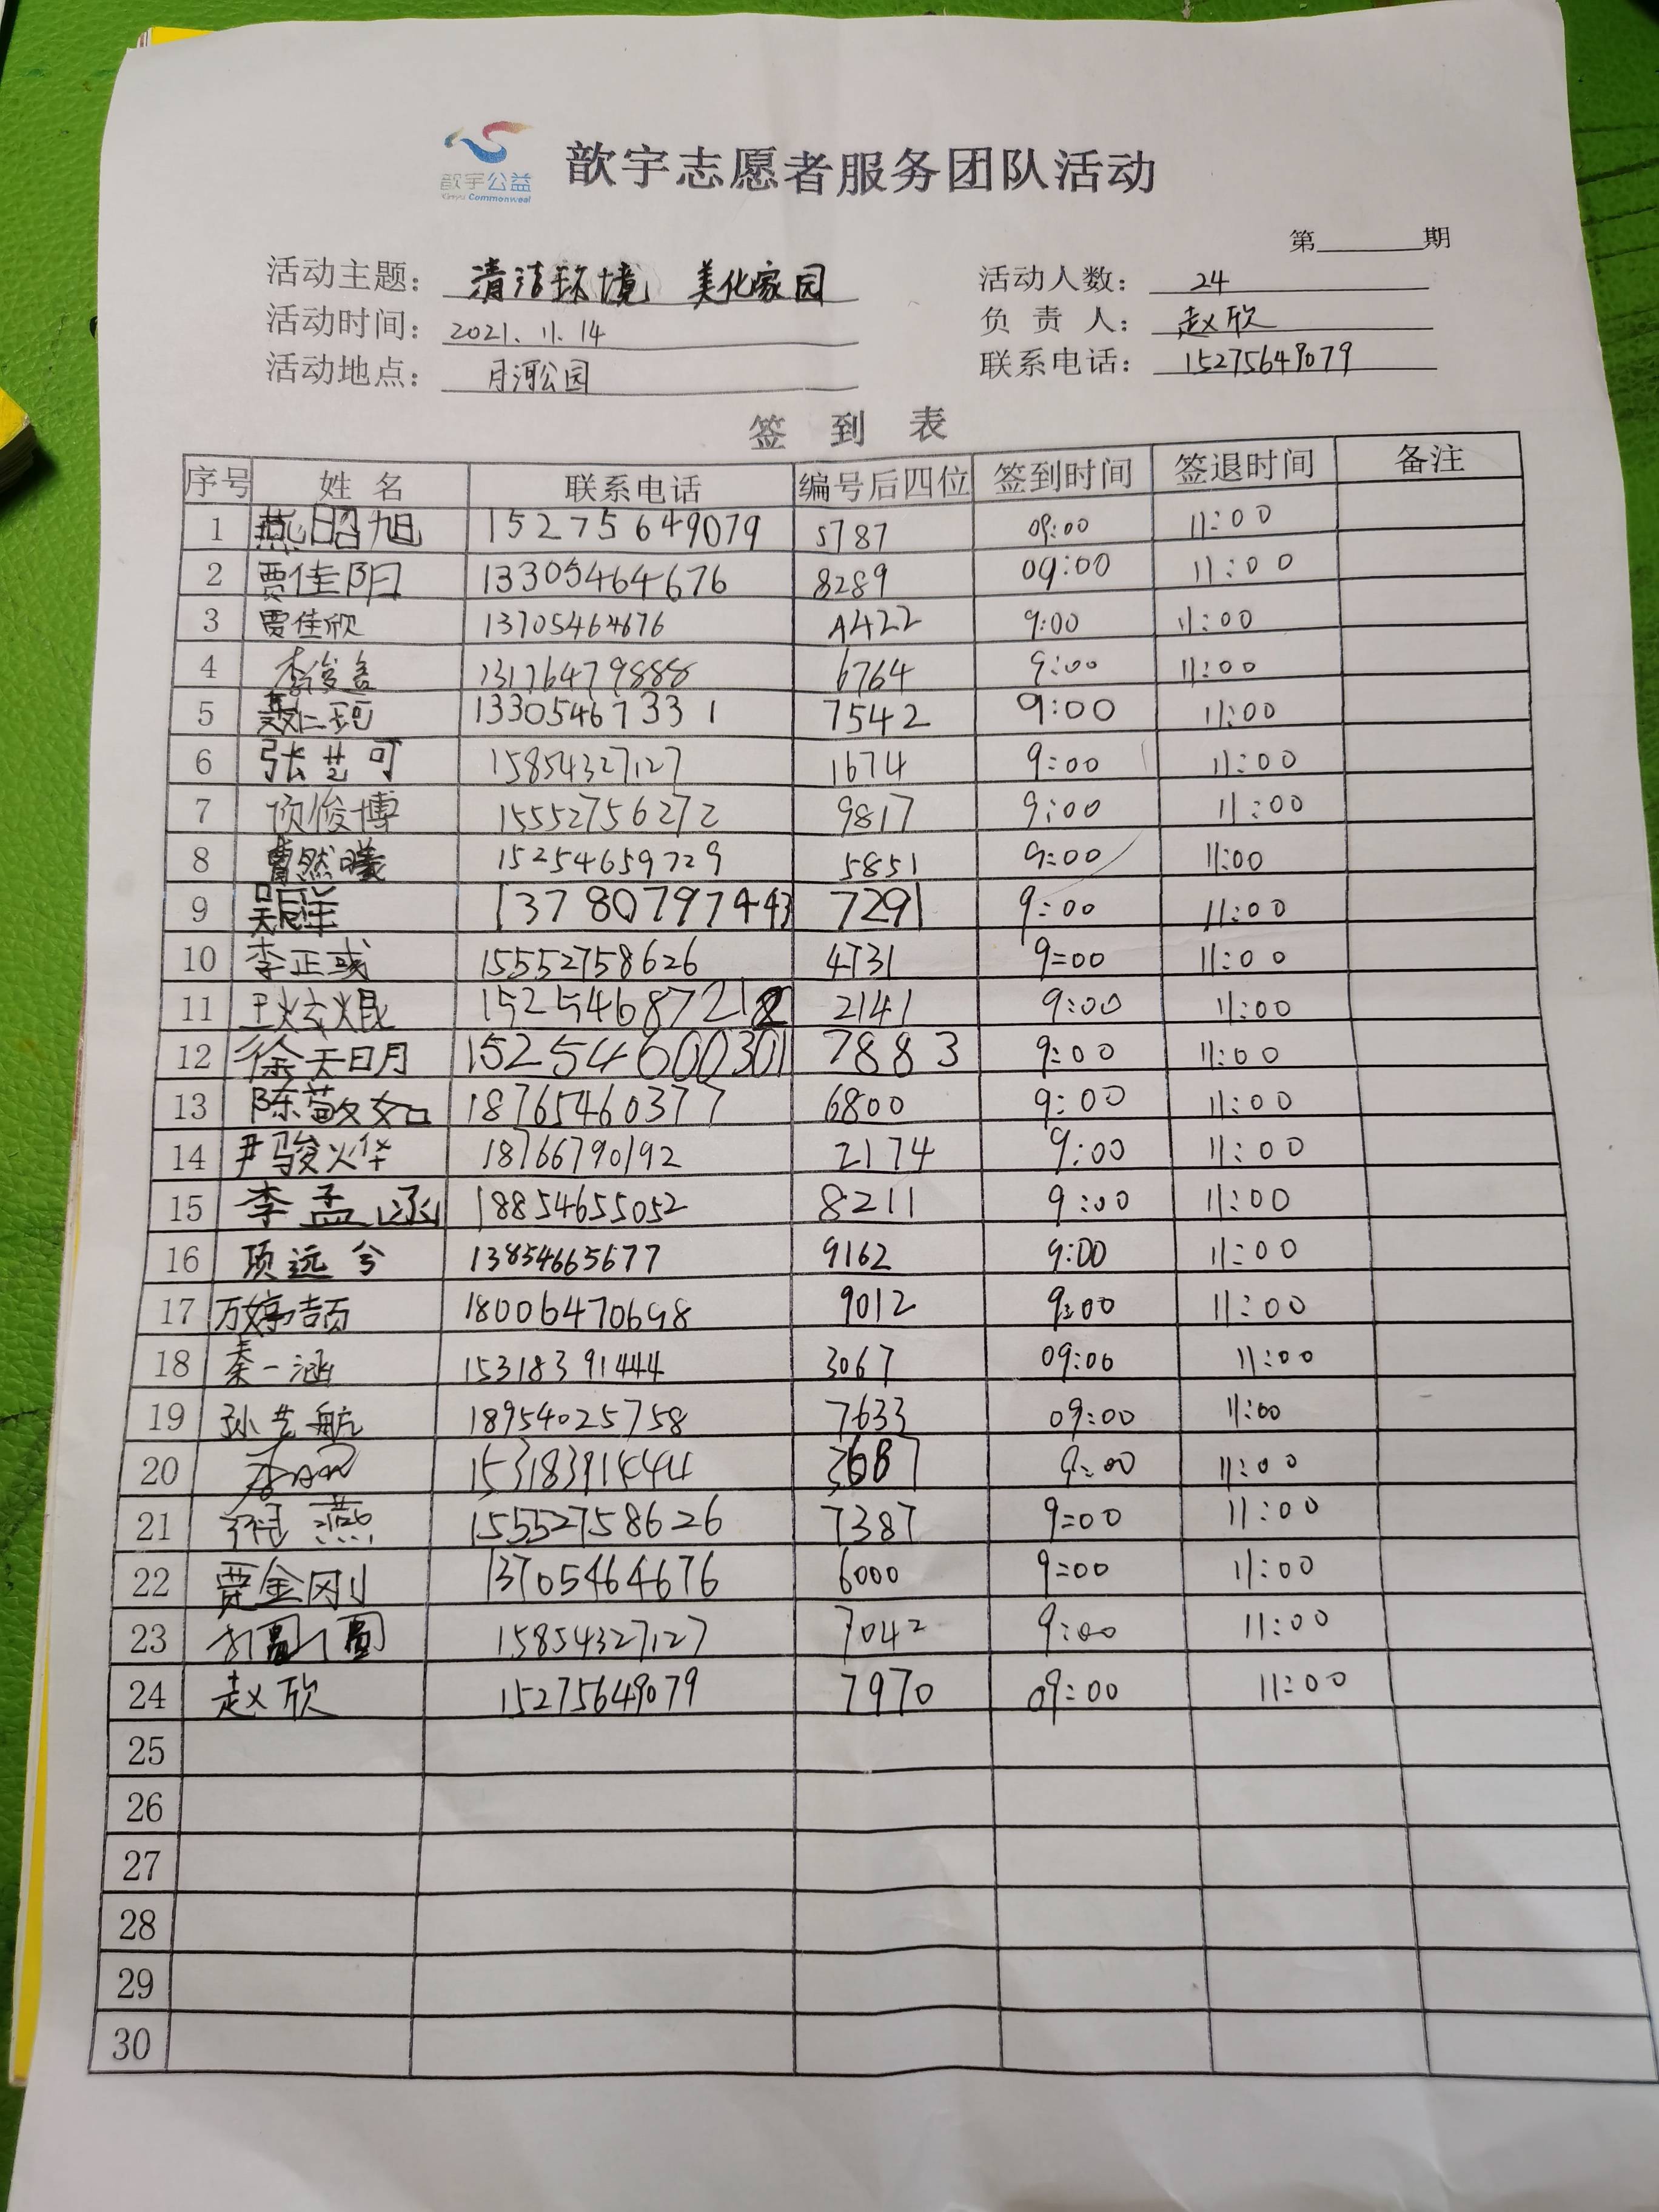 歆宇公益
Xinyu Commonweal
歆宇志愿者服务团队活动
第 期
活动主题： 清洁环境 美化家园 活动人数： 24
活动时间： 2021.11.14 负责人： 赵欣
活动地点： 月河公园 联系电话： 15275649079
签到表
序号 姓名 联系电话 编号后四位 签到时间 签退时间 备注
1 燕昭旭 15275649079 5787 09:00 11:00
2 贾佳阳 13305464676 8289 09:00 11:00
3 贾佳欣 13705464676 A422 9:00 11:00
4 李俊 13176479888 6764 9:00 11:00
5 13305467331 7542 9:00 11:00
6 张艺可 15854327127 1674 9:00 11:00
7 项俊博 15552756272 9817 9:00 11:00
8 曹然曦 15254659729 5851 9:00 11:00
9 7291 9:00 11:00
10 李正彧 15552758626 4731 9:00 11:00
11 王炫焜 2141 9:00 11:00
12 徐天明 15254600301 7883 9:00 11:00
13 陈萱如 18765460377 6800 9:00 11:00
14 尹骏烨 18766790192 2174 9:00 11:00
15 李孟涵 18854655052 8211 9:00 11:00
16 项远兮 13854665677 9162 9:00 11:00
17 万婷颉 18006470698 9012 9:00 11:00
18 秦一涵 15318391444 3067 09:00 11:00
19 孙艺航 18954025758 7633 09:00 11:00
20 15318391444 9:00 11:00
21 燕 15552758626 7387 9:00 11:00
22 贾金刚 13705464676 6000 9:00 11:00
23 15854327127 7042 9:00 11:00
24 赵欣 15275649079 7970 09:00 11:00
25
26
27
28
29
30